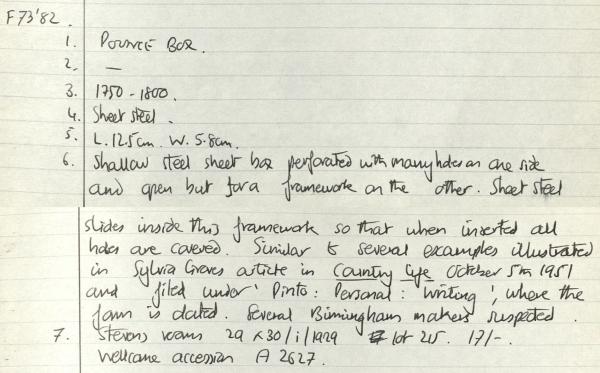 F73'82.
1. POUNCE BOX.
2. —
3. 1750-1800.
4. Sheet steel.
5. L. 12.5cm. W. 5.8cm.
6. Shallow steel sheet box perforated with many holes on one side
and open but for a framework on the other. Sheet steel
slides inside this framework so that when inserted all
holes are covered. Similar to several examples illustrated
in Sylvia Groves article in Country Life October 5th 1951
and filed under 'Pinto: Personal: Writing', where the
form is dated. Several Birmingham makers suspected.
7. Stevens rooms 29 & 30/i/1929 lot 215. 17/-.
Wellcome accession A 2627.